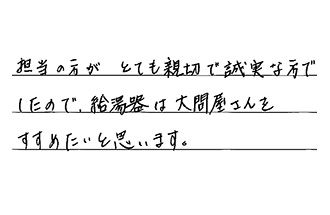 担当の方が とても親切で誠実な方で
したので、給湯器は大問屋さんを
すすめたいと思います。